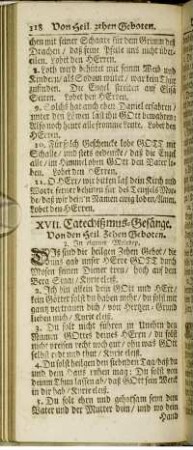 118 Von Heil. zehen Geboten.
chen mit seiner Schaare für dem Grimm des
Drachen / daß seine Pfeile uns nicht über-
eilen. Lobet den HErren.
8. Loth ward behüt mit seinem Weib und
Kindern / als Sodom
Die Engel stritten auf Elisä
Lobet des HErren.
9. Solchs hat auch eher Daniel erfahren / 
unter den Löwen ließ ihn GOtt bewahren:
Also noch heute alle fromme Leute. Lobet den
HErren.
10. Für solch Geschencke lobe GOTT mit
Schalle / und stets gedencke / daß die Engel
alle / im Himmel oben GOtt den Vater lo-
ben. Lobet den HErren.
11. O HErr / wir bitten laß dein Kirch und
Worte ferner behüten für des Teufels Mor-
de / daß wir dein'n Namen ewig loben / Amen.
Lobet den HErren.
XVII. Catechismus-Gesänge.
Von den Heil. Zehen Geboten.
1. In eigener Melodey.
DIß sind die heilgen Zehen Gebot / die
uns gab unser HErre GOtt durch
Mosen seinen Diener treu / hoch auf dem
Berg Sinai / Kyrie eleis.
2. Ich bin allein dein GOtt und HErr /
kein Götter solt du haben mehr / du solt mir
gantz vertrauen dich / von Hertzen-Grund
lieben mich / Kyrie eleis.
3. Du solt nicht führen zu Unehrn den
Namen GOttes deines HErrn / du solt
nicht preisen recht noch gut / ohn was GOtt
selbst redt und thut / Kyrie eleis.
4. Du solt heilgen den siebenden Tag / daß du
und dein Hauß ruhen mag: Du solt von
deinem Thun lassen ab / daß GOtt sein Werk
in dir hab / Kyrie eleis.
5. Du solt ehrn und gehorsam seyn dem
Vater und der Mutter dein / und wo dein
Hand